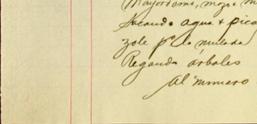 Mayordomo, mozo
Sacando agua y pica
zote pa. la mulada
Regando árboles
Al número